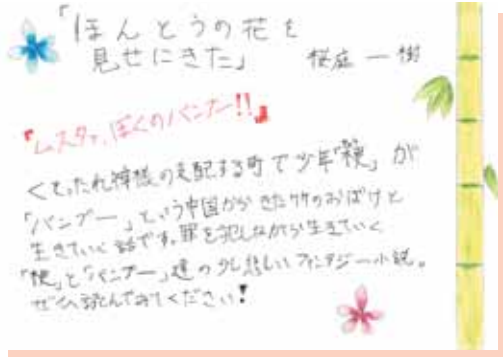 「ほんとうの花を
見せにきた」 桜庭一樹
「ムスタァ、ぼくのバンブー!!」
くそったれ神様の支配する町で少年「梗」が
「バンブー」という中国からきた竹のおばけと
生きていく話です。罪を犯しながら生きていく
「梗」と「バンブー」達の少し悲しいファンタジー小説。
ぜひ読んでみてください!